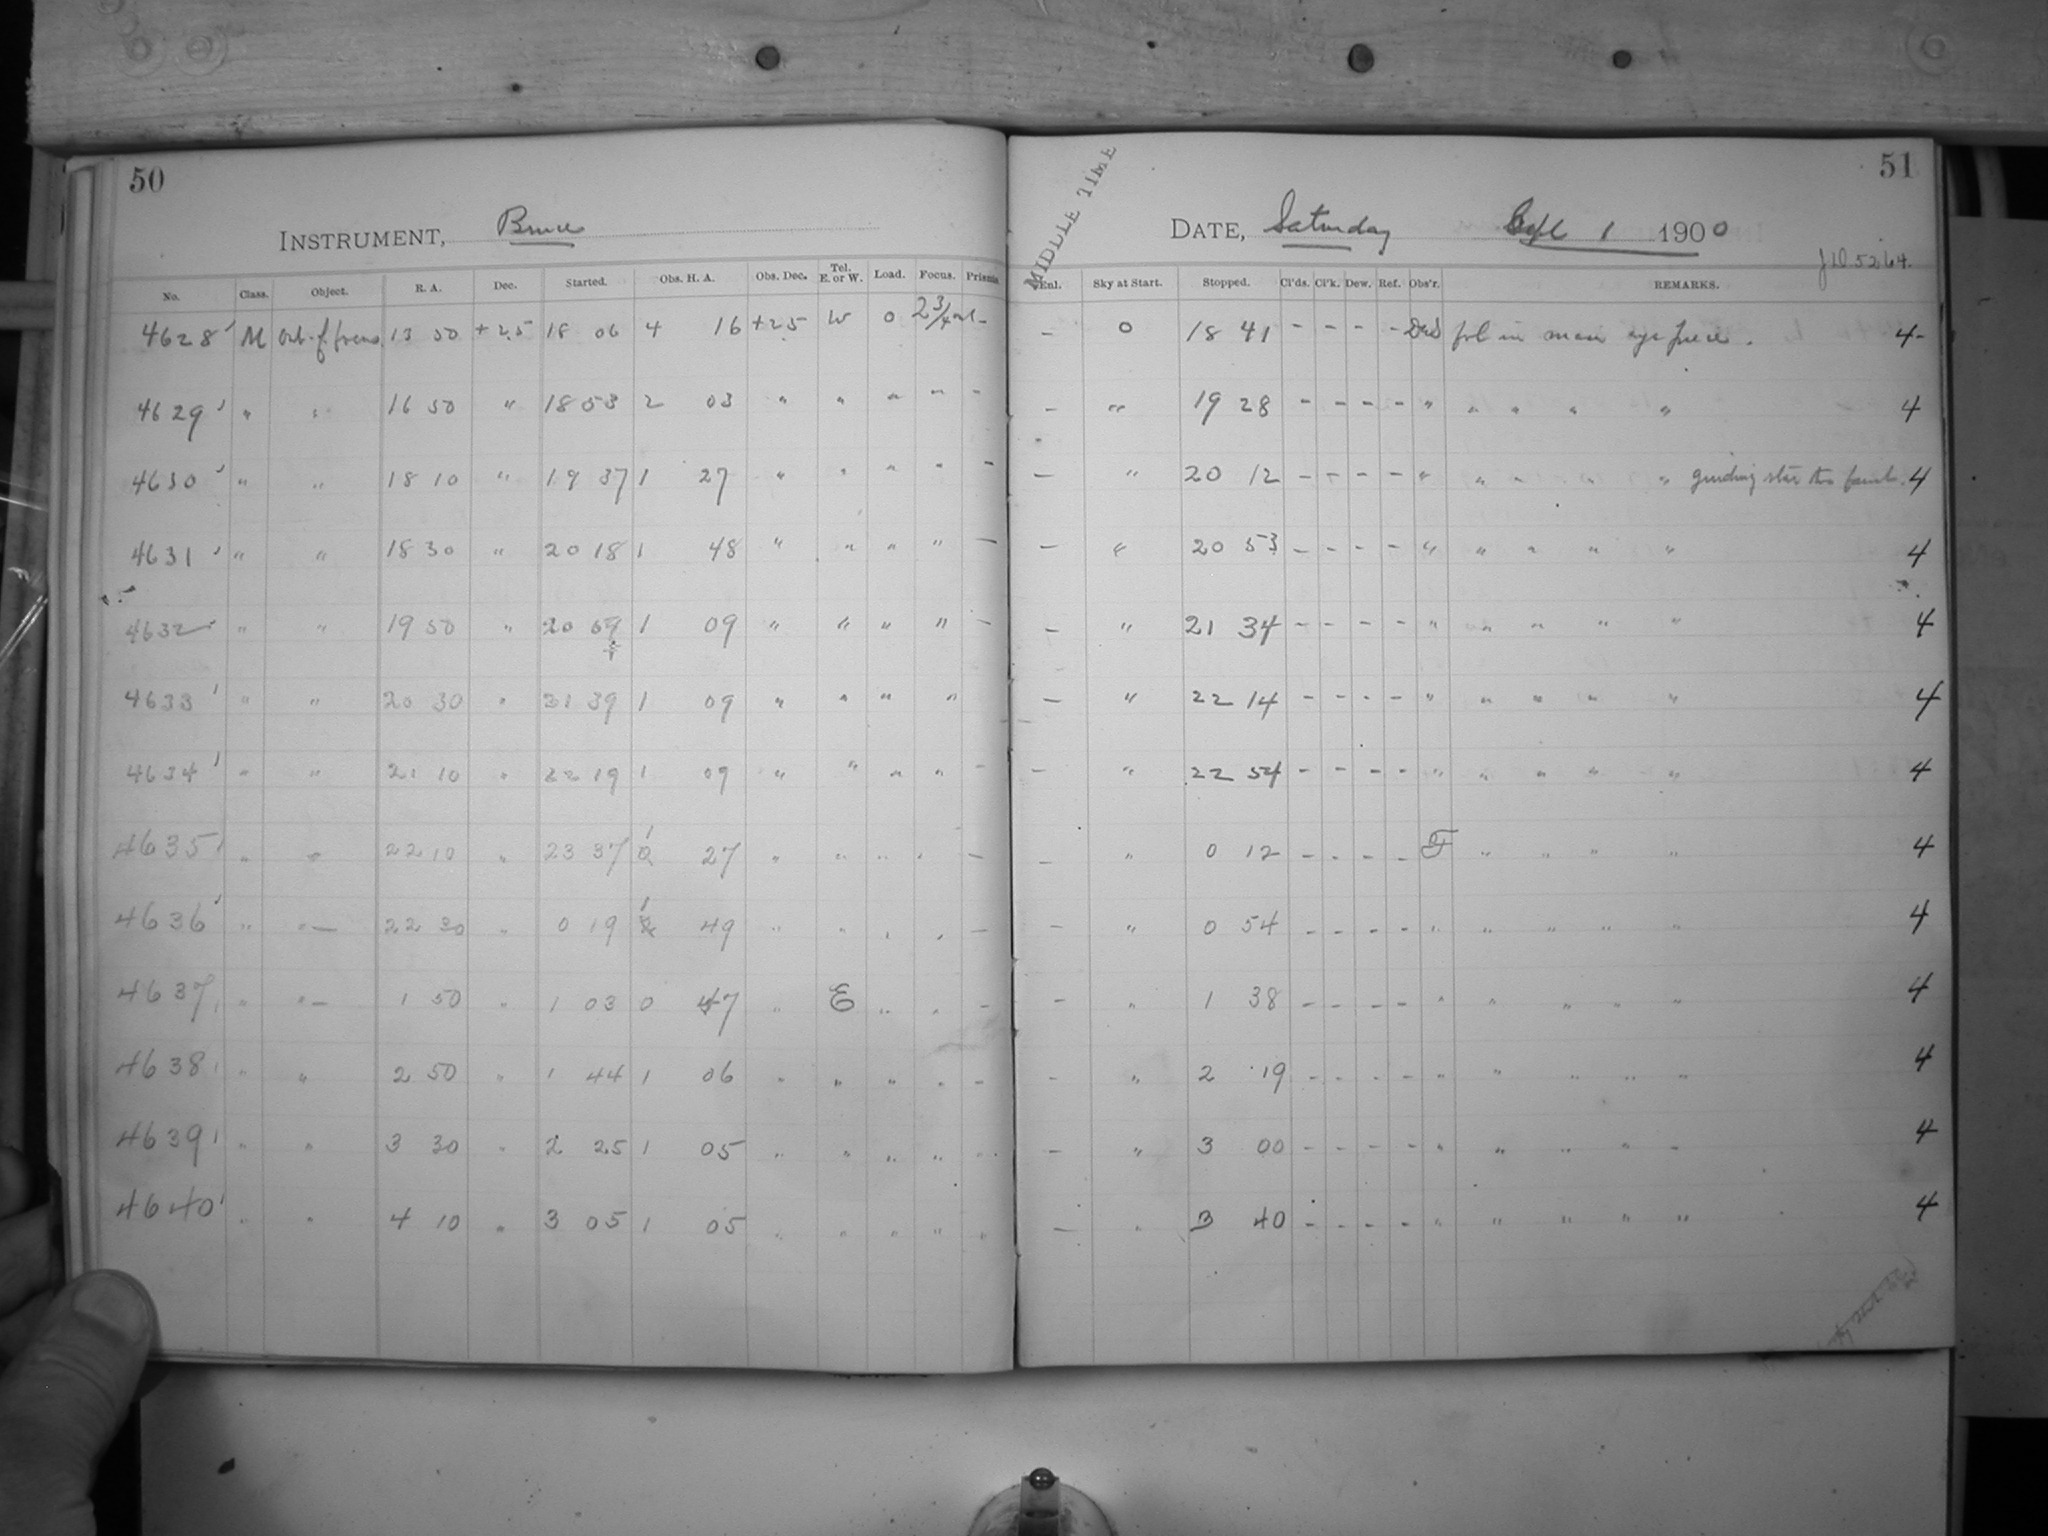 50
INSTRUMENT, Bruce
No. Class. Object. R. A. Dec. Started. Obs. H. A. Obs. Dec. Tel. E. or W. Load. Focus. Prisms
4628 M Out of focus 13 50 +25 18 06 4 16 +25 W 0 2 3/4 -
4629 " " 16 50 " 18 53 2 03 " " " " -
4630 " " 18 10 " 19 37 1 27 " " " " -
4631 " " 18 30 " 20 18 1 48 " " " " -
4632 " " 19 50 " 20 59 1 09 " " " " -
4633 " " 20 30 " 21 39 1 09 " " " "
4634 " " 21 10 " 22 19 1 09 " " " " -
4635 " " 22 10 " 23 37 1 27 " " " " -
4636 " " — 22 30 " 0 19 1 49 " " " " -
4637 " " — 1 50 " 1 03 0 47 " E " " -
4638 " " 2 50 " 1 44 1 06 " " " " -
4639 " " 3 30 " 2 25 1 05 " " " " "
4640 " " 4 10 " 3 05 1 05 " " " " "
51
MIDDLE TIME
DATE, Saturday Sept 1 1900
JD 5264.
Enl. Sky at Start. Stopped. Cl'ds. Cl'k. Dew. Ref. Obs'r. REMARKS.
- 0 18 41 - - - - fol in main eye piece. 4
- " 19 28 - - - - " " " " " 4
- " 20 12 - - - - " " " " " guiding star too faint. 4
- " 20 53 - - - - " " " " " 4
- " 21 34 - - - - " " " " " 4
- " 22 14 - - - - " " " " " 4
- " 22 54 - - - - " " " " " 4
- " 0 12 - - - - F " " " " 4
- " 0 54 - - - - " " " " " 4
- " 1 38 - - - - " " " " " 4
- " 2 19 - - - - " " " " " 4
- " 3 00 - - - - " " " " - 4
- " 3 40 - - - - " " " " " 4